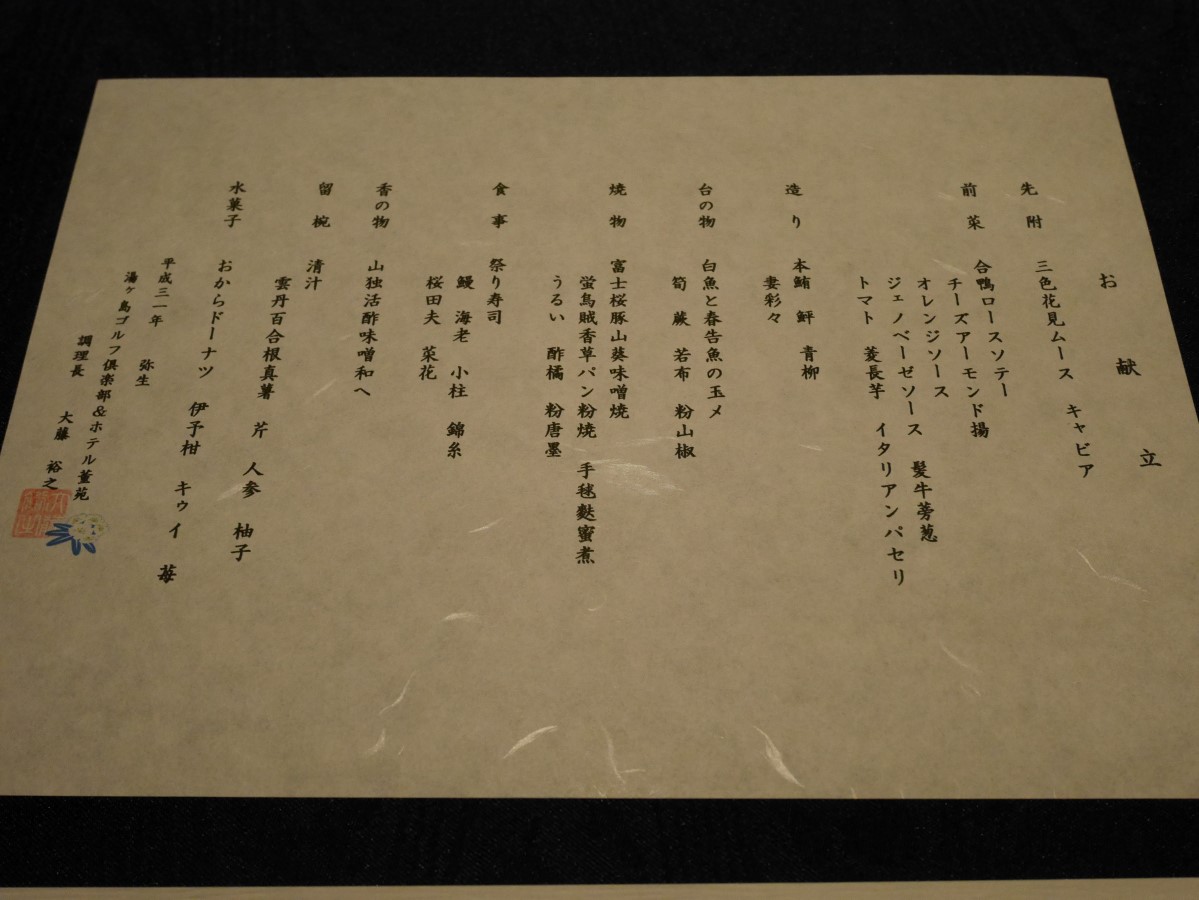 お献立
先附　三色花見ムース　キャビア
前菜　合鴨ロースソテー
チーズアーモンド揚
オレンジソース　髪牛蒡葱
ジェノベーゼソース　イタリアンパセリ
トマト　菱長芋
造り　本鮪　鮃　青柳
妻彩々
台の物　白魚と春告魚の玉〆
筍　蕨　若布　粉山椒
焼物　富士桜豚山葵味噌焼
蛍烏賊香草パン粉焼　手毬麩蜜煮
うるい　酢橘　粉唐墨
食事　祭り寿司
鰻　海老　小柱　錦糸
桜田夫　菜花
香の物　山独活酢味噌和へ
留椀　清汁
雲丹百合根真薯　芹　人参　柚子
水菓子　おからドーナツ　伊予柑　キゥイ　苺
平成三一年　弥生
湯ヶ島ゴルフ倶楽部&ホテル董苑
調理長　大藤　裕之